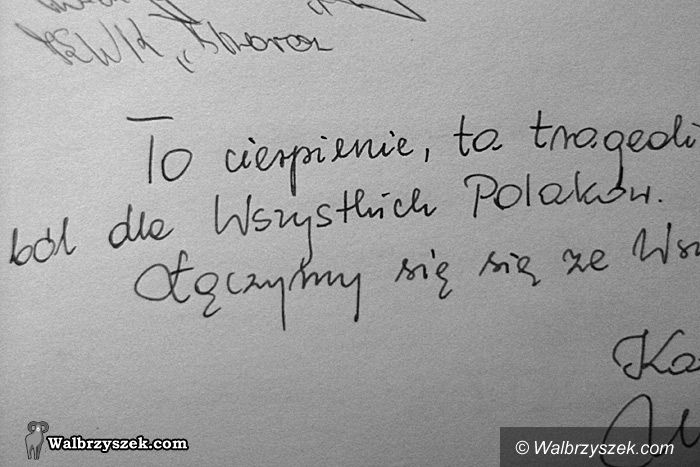 To cierpienie, ta tragedi
ból dla Wszystkich Polaków.
Łączymy się się ze Wsz
Ka
Walbrzyszek.com
© Walbrzyszek.com